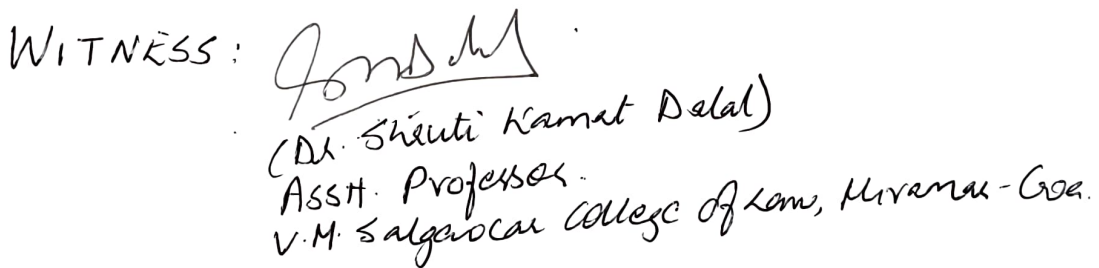 WITNESS:
(Dr. Shruti Kamat Dalal)
Asst. Professor.
V.M. Salgaocar College of Law, Miramar-Goa.